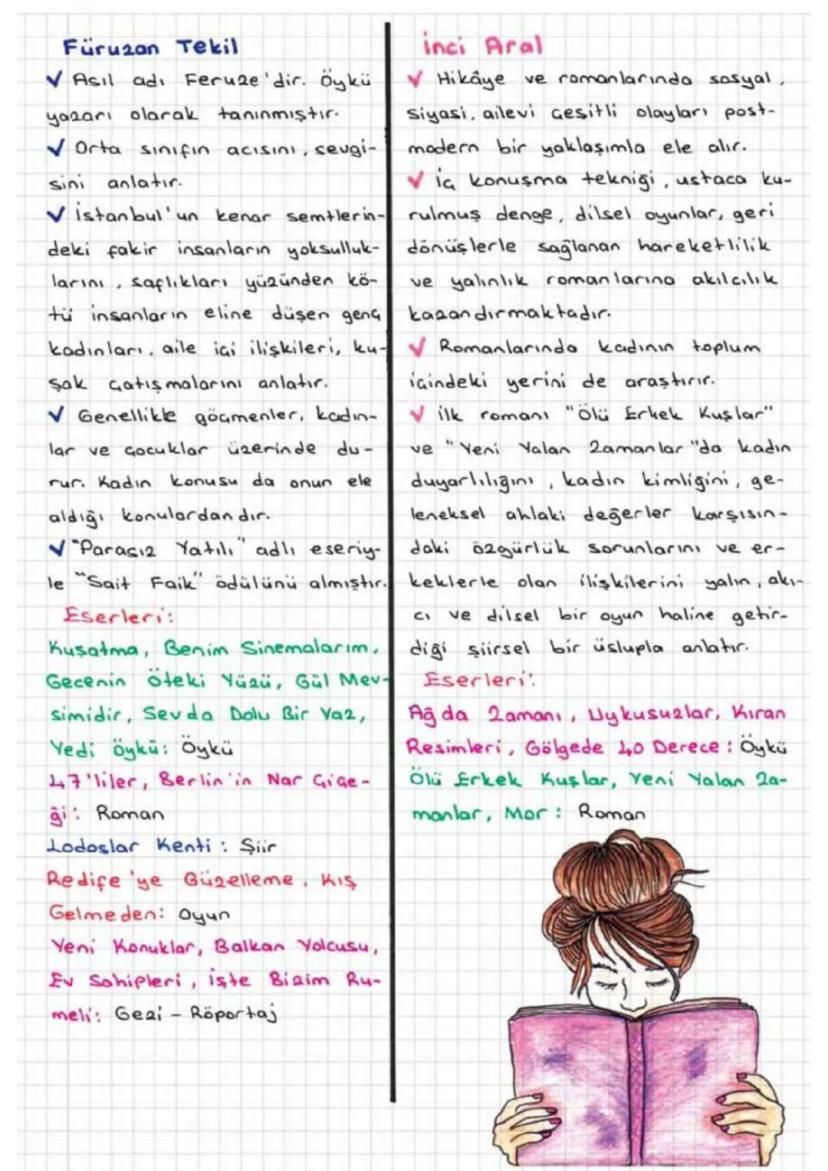 Füruzan Tekil
✓ Asıl adı Feruze'dir. Öykü
yazarı olarak tanınmıştır.
✓ Orta sınıfın acısını, sevgi-
sini anlatır.
✓ İstanbul'un kenar semtlerin-
deki fakir insanların yoksulluk-
larını, saflıkları yüzünden kö-
tü insanların eline düşen genç
kadınları, aile içi ilişkileri, ku-
şak çatışmalarını anlatır.
✓ Genellikle göçmenler, kadın-
lar ve çocuklar üzerinde du-
rur. Kadın konusu da onun ele
aldığı konulardandır.
✓ "Parasız Yatılı" adlı eseriy-
le "Sait Faik" ödülünü almıştır.
Eserleri:
Kuşatma, Benim Sinemalarım,
Gecenin Öteki Yüzü, Gül Mev-
simidir, Sevda Dolu Bir Yaz,
Yedi Öykü: Öykü
47'liler, Berlin'in Nar Çiçe-
ği: Roman
Lodoslar Kenti: Şiir
Redife'ye Güzelleme, Kış
Gelmeden: Oyun
Yeni Konuklar, Balkan Yolcusu,
Ev Sahipleri, İşte Bizim Ru-
meli: Gezi - Röportaj
İnci Aral
✓ Hikâye ve romanlarında sosyal,
siyasi, ailevi çeşitli olayları post-
modern bir yaklaşımla ele alır.
✓ İç konuşma tekniği, ustaca ku-
rulmuş denge, dilsel oyunlar, geri
dönüşlerle sağlanan hareketlilik
ve yalınlık romanlarına akılcılık
kazandırmaktadır.
✓ Romanlarında kadının toplum
içindeki yerini de araştırır.
✓ İlk romanı "Ölü Erkek Kuşlar"
ve "Yeni Yalan Zamanlar"da kadın
duyarlılığını, kadın kimliğini, ge-
leneksel ahlaki değerler karşısın-
daki özgürlük sorunlarını ve er-
keklerle olan ilişkilerini yalın, akı-
cı ve dilsel bir oyun haline getir-
diği şiirsel bir üslupla anlatır.
Eserleri:
Ağda Zamanı, Uykusuzlar, Kıran
Resimleri, Gölgede 40 Derece: Öykü
Ölü Erkek Kuşlar, Yeni Yalan Za-
manlar, Mor: Roman